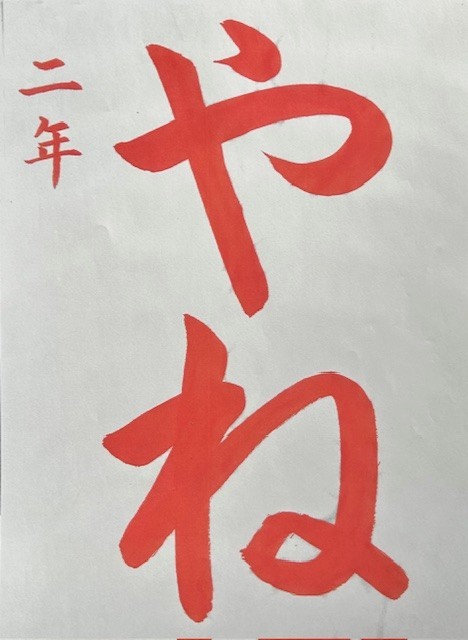 やね
二年